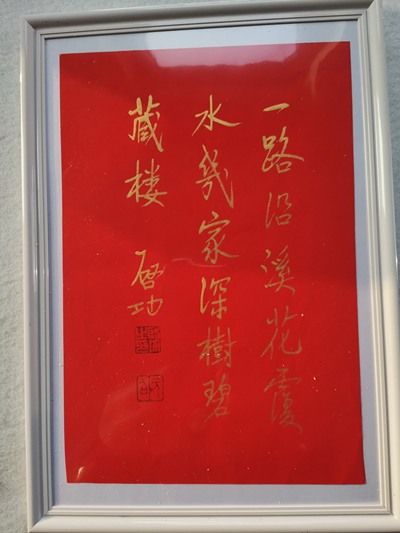 一路沿溪花覆
水幾家深樹碧
藏楼 啓功